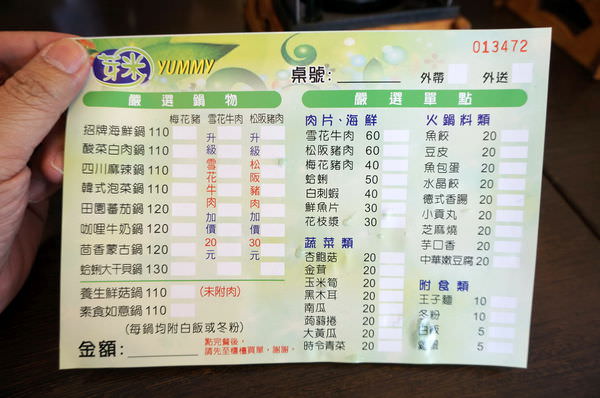 013472
芽米 YUMMY
桌號: 外帶 外送
嚴選鍋物
梅花豬 雪花牛肉 松阪豬肉
招牌海鮮鍋 110
酸菜白肉鍋 110
四川麻辣鍋 110
韓式泡菜鍋 120
田園蕃茄鍋 120
咖哩牛奶鍋 120
茴香蒙古鍋 120
蛤蜊大干貝鍋 130
升級雪花牛肉加價20元
升級松阪豬肉加價30元
養生鮮菇鍋 110 (未附肉)
素食如意鍋 110
(每鍋均附白飯或冬粉)
金額:
點完餐後,
請先至櫃檯買單,謝謝。
嚴選單點
肉片、海鮮
雪花牛肉 60
松阪豬肉 60
梅花豬肉 40
蛤蜊 50
白刺蝦 40
鮮魚片 30
花枝漿 30
蔬菜類
杏鮑菇 20
金茸 20
玉米筍 20
黑木耳 20
南瓜 20
蒟蒻捲 20
大黃瓜 20
時令青菜 20
火鍋料類
魚餃 20
豆皮 20
魚包蛋 20
水晶餃 20
德式香腸 20
小貢丸 20
芝麻燒 20
芋口香 20
中華嫩豆腐 20
附食類
王子麵 10
冬粉 10
白飯 5
雞蛋 5